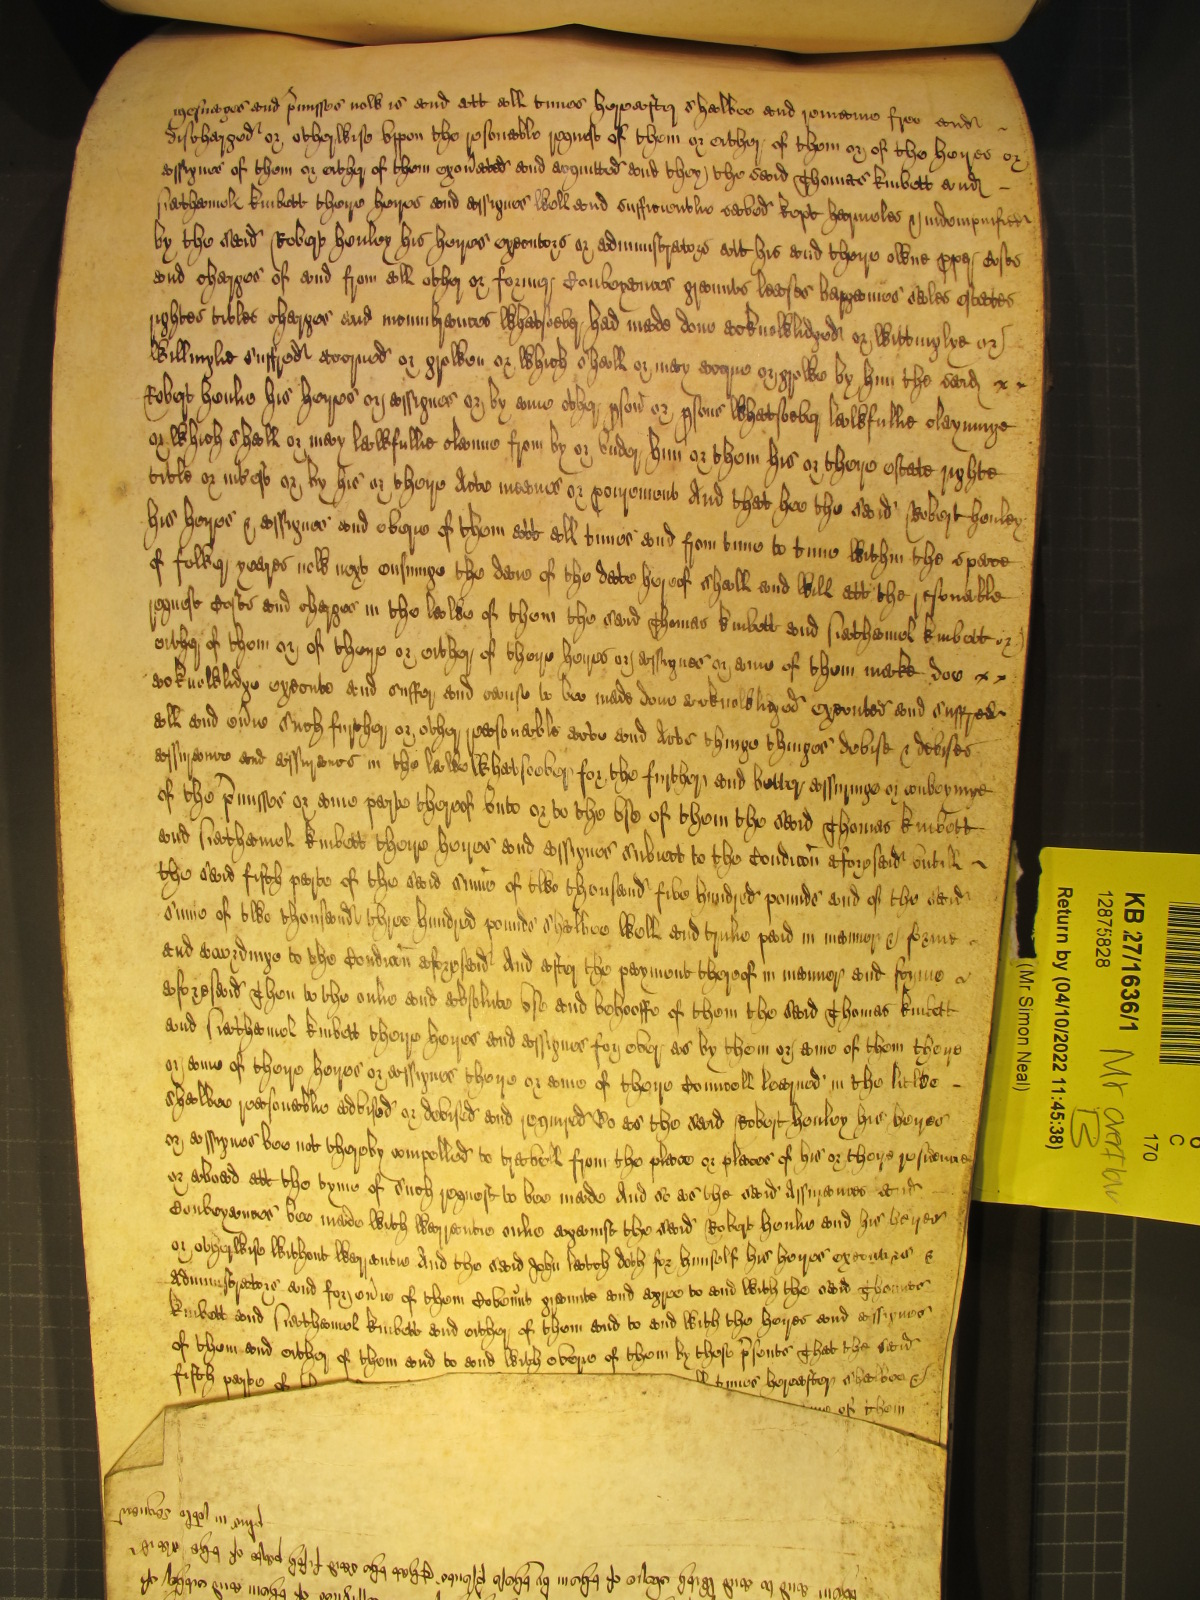 mesuages and p'misses now is and att all tymes hereafter shalbee and remaine free and
discharged or otherwise vppon the resonable request of them or either of them or of the heyres or
assignes of them or either of them exon'ated and acquitted and they the said Thomas Kinbett and
Nathaniel Kinbett theire heyres and assignes well and sufficientlie saved kept harmeles & indempnified
by the said Robert Henley his heyres executors or administrators att his and theire owne pper costs
and charges of and from all other or former Conveyances graunts leases bargaines sales estates
rightes titles charges and incumbrances whatsoever had made done acknowlidged or wittinglye or
willinglie suffred accrued or growen or which shall or may accrue or growe by him the said
Robert Henlie his heyres or assignes or by anie other pson or psons whatsoever lawfullie clayminge
or which shall or may lawfullie clayme from by or vnder him or them his or theire estate righte
title or intrest or by his or theire Acte meanes or pcurement And that hee the said Robert Henley
his heyres & assignes and everie of them att all times and from time to time within the space
of fower yeares now next ensuinge the date of the date hereof shall and will att the resonable
request Costs and charges in the lawe of them the said Thomas Kinbett and Nathaniel Kinbett or
either of them or of theire or either of theire heyres or assignes or anie of them make doe
acknowlidge execute and suffer and cause to bee made done acknowlidged executed and suffred
all and ev'ie such further or other reasonable acte and Acts thinge thinges devise & devises
assurance and assurances in the lawe whatsoever for the further and better assuringe or conveyinge
of the p'misses or anie parte thereof vnto or to the vse of them the said Thomas Kinbett
and Nathaniel Kinbett theire heyres and assignes subiect to the Condicon aforesaid vntill
the said fifth parte of the said summe of two thousand five hundred pounds and of the said
summe of two thousand three hundred pounds shalbee well and trulie paid in manner & forme
and accordinge to the Condicon aforesaid And after the payment thereof in manner and forme
aforesaid Then to the onlie and absolute vse and behooffe of them the said Thomas Kinbett
and Nathaniel Kinbett theire heyres and assignes for ever as by them or anie of them theire
or anie of theire heyres or assignes theire or anie of theire Councell learned in the lawe
shalbee reasonablie advised or devised and required So as the said Robert Henley his heyres
or assignes bee not thereby compelled to travell from the place or places of his or theire residence
or aboad att the tyme of such request to bee made And so as the said Assurances and
Conveyances bee made with warrantie onlie against the said Robert Henlie and his heyres
or otherwise without warrantie And the said John Latch doth for himself his heyres executors &
Administrators and for ev'ie of them Coven'nt graunte and agree to and with the said Thomas
Kinbett and Nathaniel Kinbett and either of them and to and with the heyres and assignes
of them and either of them and to and with everie of them by these p'sents That the said
fifth parte of times hereafter shalbee &
of them
KB 27/1636/1
12875828
Return by (04/10/2022 11:45:38)
(Mr Simon Neal)
170
C